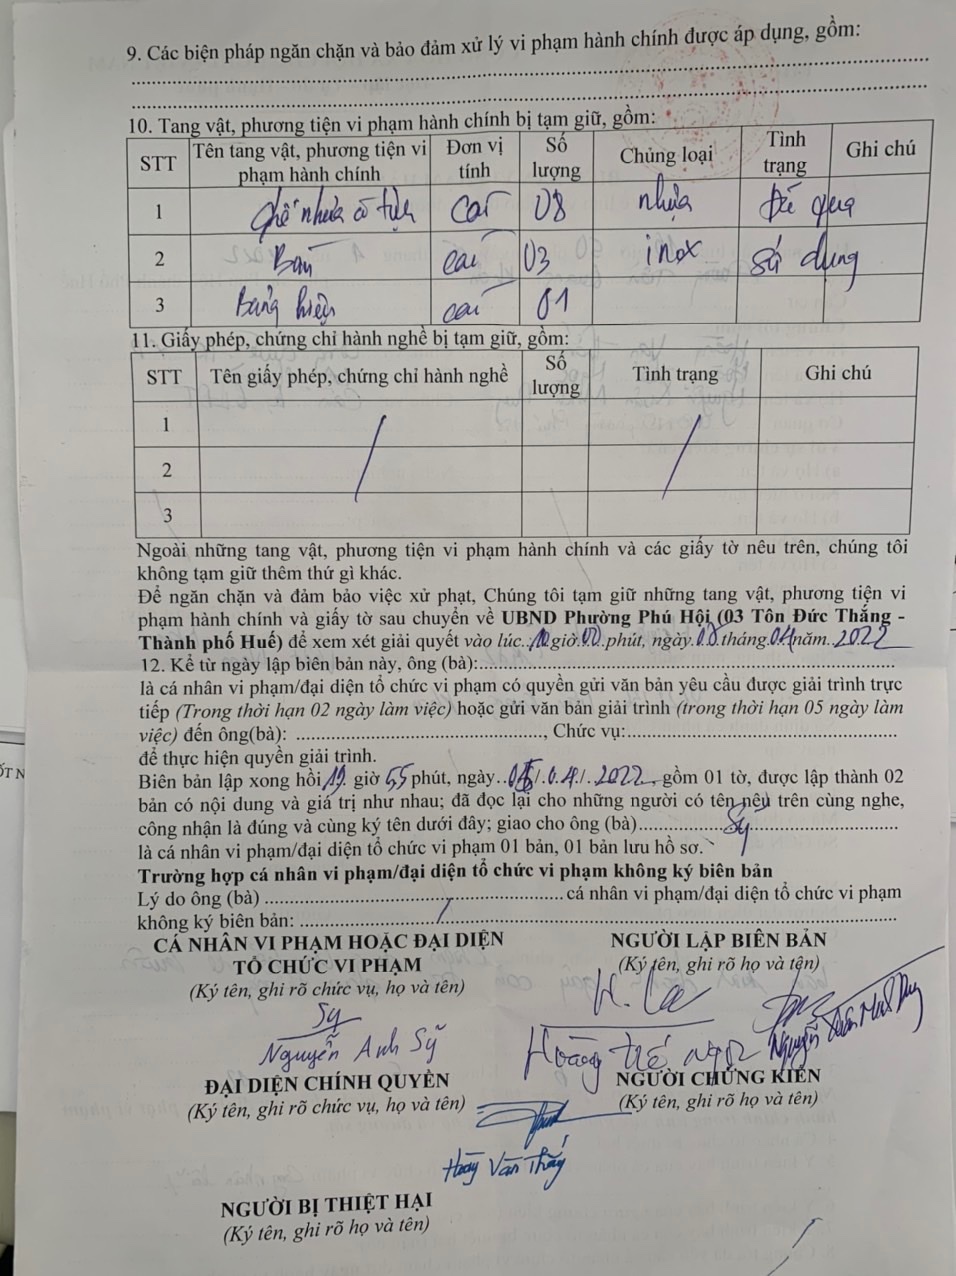 9. Các biện pháp ngăn chặn và bảo đảm xử lý vi phạm hành chính được áp dụng, gồm:
10. Tang vật, phương tiện vi phạm hành chính bị tạm giữ, gồm:
STT Tên tang vật, phương tiện vi phạm hành chính Đơn vị tính Số lượng Chủng loại Tình trạng Ghi chú
1 ghế nhựa có tựa cái 08 nhựa Đã qua
2 Bàn cái 03 inox sử dụng
3 Bảng hiệu cái 01
11. Giấy phép, chứng chỉ hành nghề bị tạm giữ, gồm:
STT Tên giấy phép, chứng chỉ hành nghề Số lượng Tình trạng Ghi chú
1
2
3
Ngoài những tang vật, phương tiện vi phạm hành chính và các giấy tờ nêu trên, chúng tôi
không tạm giữ thêm thứ gì khác.
Để ngăn chặn và đảm bảo việc xử phạt, Chúng tôi tạm giữ những tang vật, phương tiện vi
phạm hành chính và giấy tờ sau chuyển về UBND Phường Phú Hội (03 Tôn Đức Thắng -
Thành phố Huế) để xem xét giải quyết vào lúc..giờ.00.phút, ngày.08.tháng.04.năm..2022
12. Kể từ ngày lập biên bản này, ông (bà):
là cá nhân vi phạm/đại diện tổ chức vi phạm có quyền gửi văn bản yêu cầu được giải trình trực
tiếp (Trong thời hạn 02 ngày làm việc) hoặc gửi văn bản giải trình (trong thời hạn 05 ngày làm
việc) đến ông(bà): ............, Chức vụ:............
để thực hiện quyền giải trình.
Biên bản lập xong hồi 19. giờ 55 phút, ngày../.04./..2022., gồm 01 tờ, được lập thành 02
bản có nội dung và giá trị như nhau; đã đọc lại cho những người có tên nêu trên cùng nghe,
công nhận là đúng và cùng ký tên dưới đây; giao cho ông (bà)......Sỹ......
là cá nhân vi phạm/đại diện tổ chức vi phạm 01 bản, 01 bản lưu hồ sơ.
Trường hợp cá nhân vi phạm/đại diện tổ chức vi phạm không ký biên bản
Lý do ông (bà) ............cá nhân vi phạm/đại diện tổ chức vi phạm
không ký biên bản: ............
CÁ NHÂN VI PHẠM HOẶC ĐẠI DIỆN
TỔ CHỨC VI PHẠM
(Ký tên, ghi rõ chức vụ, họ và tên)
Sỹ
Nguyễn Anh Sỹ
NGƯỜI LẬP BIÊN BẢN
(Ký tên, ghi rõ họ và tên)
ĐẠI DIỆN CHÍNH QUYỀN
(Ký tên, ghi rõ chức vụ, họ và tên)
Hoàng Văn Thắng
NGƯỜI CHỨNG KIẾN
(Ký tên, ghi rõ họ và tên)
NGƯỜI BỊ THIỆT HẠI
(Ký tên, ghi rõ họ và tên)